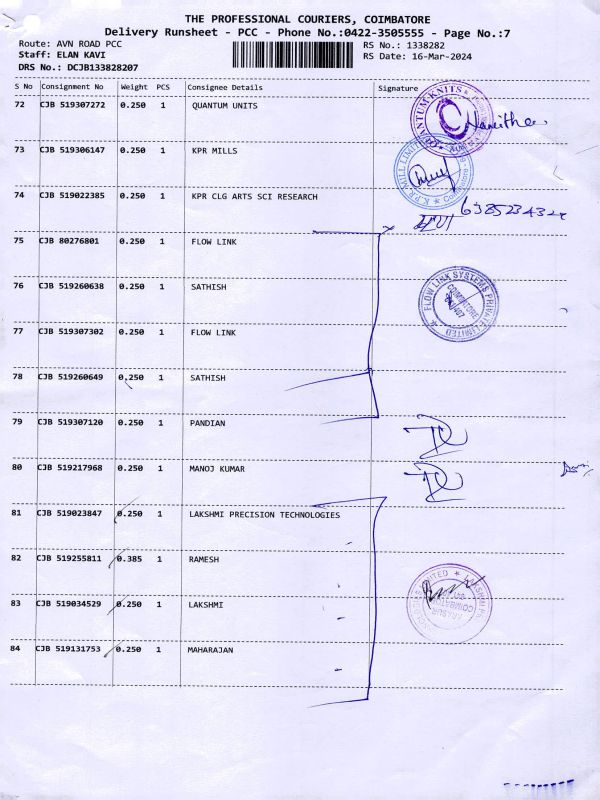 THE PROFESSIONAL COURIERS, COIMBATORE
Delivery Runsheet - PCC - Phone No.:0422-3505555 - Page No.:7
Route: AVN ROAD PCC RS No.: 1338282
Staff: ELAN KAVI RS Date: 16-Mar-2024
DRS No.: DCJB133828207
S No Consignment No Weight PCS Consignee Details Signature
72 CJB 519307272 0.250 1 QUANTUM UNITS
QUANTUM KNITS
73 CJB 519306147 0.250 1 KPR MILLS
K.P.R. MILL LIMITED
74 CJB 519022385 0.250 1 KPR CLG ARTS SCI RESEARCH
75 CJB 80276801 0.250 1 FLOW LINK
76 CJB 519260638 0.250 1 SATHISH
FLOW LINK SYSTEMS PRIVATE LIMITED
COIMBATORE
77 CJB 519307302 0.250 1 FLOW LINK
78 CJB 519260649 0.250 1 SATHISH
79 CJB 519307120 0.250 1 PANDIAN
80 CJB 519217968 0.250 1 MANOJ KUMAR
81 CJB 519023847 0.250 1 LAKSHMI PRECISION TECHNOLOGIES
82 CJB 519255811 0.385 1 RAMESH
83 CJB 519034529 0.250 1 LAKSHMI
84 CJB 519131753 0.250 1 MAHARAJAN